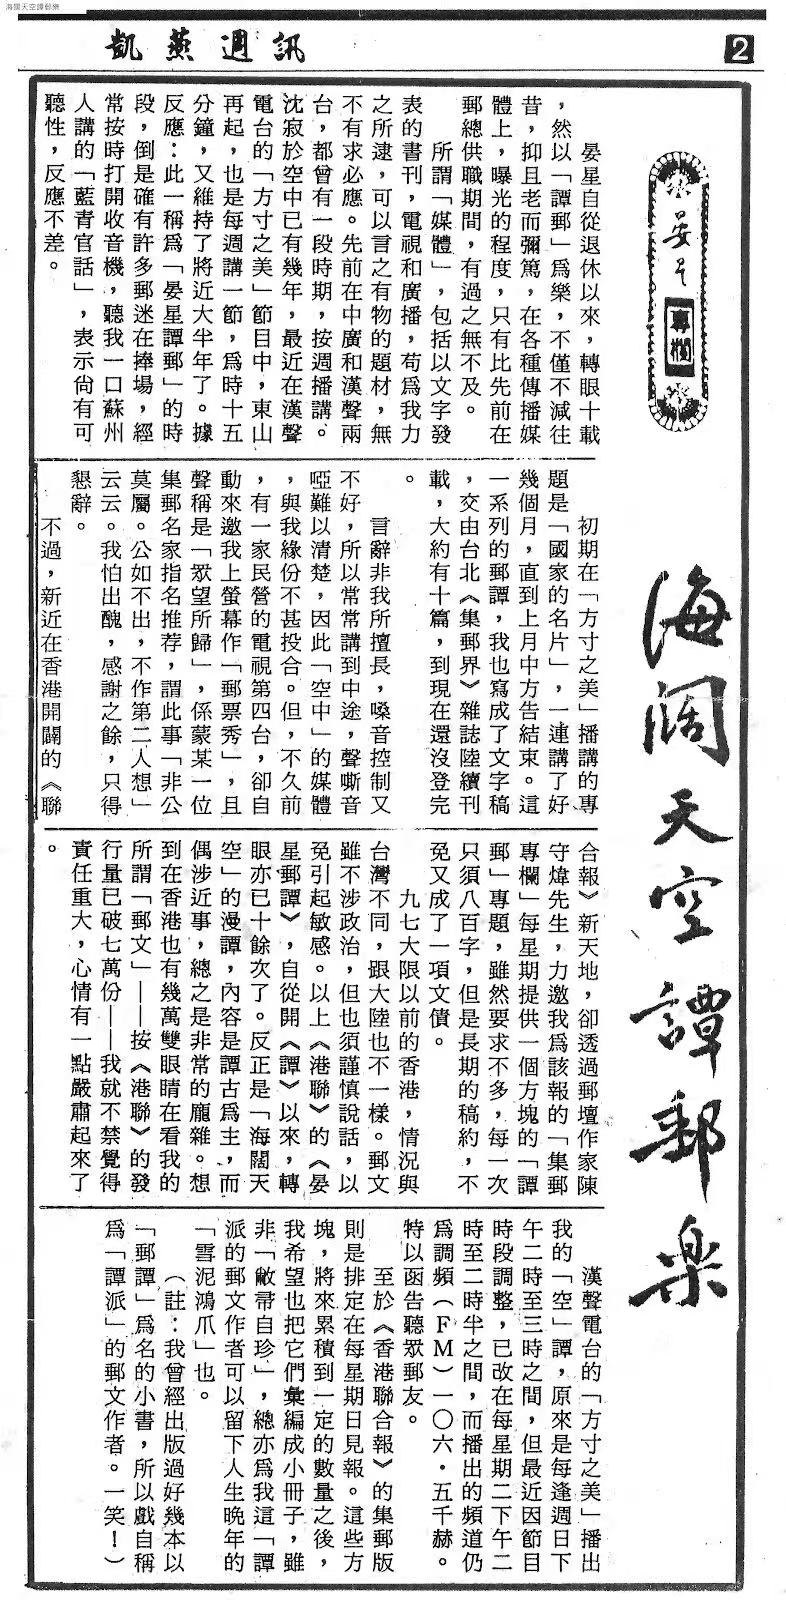 海闊天空譚郵樂
凱燕週訊
2
晏星
專欄
海闊天空譚郵樂
晏星自從退休以來，轉眼十載
，然以「譚郵」為樂，不僅不減往
昔，抑且老而彌篤，在各種傳播媒
體上，曝光的程度，只有比先前在
郵總供職期間，有過之無不及。
所謂「媒體」，包括以文字發
表的書刊，電視和廣播，苟為我力
之所逮，可以言之有物的題材，無
不有求必應。先前在中廣和漢聲兩
台，都曾有一段時期，按週播講。
沈寂於空中已有幾年，最近在漢聲
電台的「方寸之美」節目中，東山
再起，也是每週講一節，為時十五
分鐘，又維持了將近大半年了。據
反應：此一稱為「晏星譚郵」的時
段，倒是確有許多郵迷在捧場，經
常按時打開收音機，聽我一口蘇州
人講的「藍青官話」，表示尚有可
聽性，反應不差。
初期在「方寸之美」播講的專
題是「國家的名片」，一連講了好
幾個月，直到上月中方告結束。這
一系列的郵譚，我也寫成了文字稿
，交由台北《集郵界》雜誌陸續刊
載，大約有十篇，到現在還沒登完
。
言辭非我所擅長，嗓音控制又
不好，所以常常講到中途，聲嘶音
啞難以清楚，因此「空中」的媒體
，與我緣份不甚投合。但，不久前
，有一家民營的電視第四台，卻自
動來邀我上螢幕作「郵票秀」，且
聲稱是「眾望所歸」，係蒙某一位
集郵名家指名推荐，謂此事「非公
莫屬。公如不出，不作第二人想」
云云。我怕出醜，感謝之餘，只得
懇辭。
不過，新近在香港開闢的《聯
合報》新天地，卻透過郵壇作家陳
守煒先生，力邀我為該報的「集郵
專欄」每星期提供一個方塊的「譚
郵」專題，雖然要求不多，每一次
只須八百字，但是長期的稿約，不
免又成了一項文債。
九七大限以前的香港，情況與
台灣不同，跟大陸也不一樣。郵文
雖不涉政治，但也須謹慎說話，以
免引起敏感。以上《港聯》的《晏
星郵譚》，自從開《譚》以來，轉
眼亦已十餘次了。反正是「海闊天
空」的漫譚，內容是譚古為主，而
偶涉近事，總之是非常的龐雜。想
到在香港也有幾萬雙眼睛在看我的
所謂「郵文」——按《港聯》的發
行量已破七萬份——我就不禁覺得
責任重大，心情有一點嚴肅起來了
。
漢聲電台的「方寸之美」播出
我的「空」譚，原來是每逢週日下
午二時至三時之間，但最近因節目
時段調整，已改在每星期二下午二
時至二時半之間，而播出的頻道仍
為調頻（FM）一〇六·五千赫。
特以函告聽眾郵友。
至於《香港聯合報》的集郵版
則是排定在每星期日見報。這些方
塊，將來累積到一定的數量之後，
我希望也把它們彙編成小冊子，雖
非「敝帚自珍」，總亦為我這「譚
派的郵文作者可以留下人生晚年的
「雪泥鴻爪」也。
（註：我曾經出版過好幾本以
「郵譚」為名的小書，所以戲自稱
為「譚派」的郵文作者。一笑！）